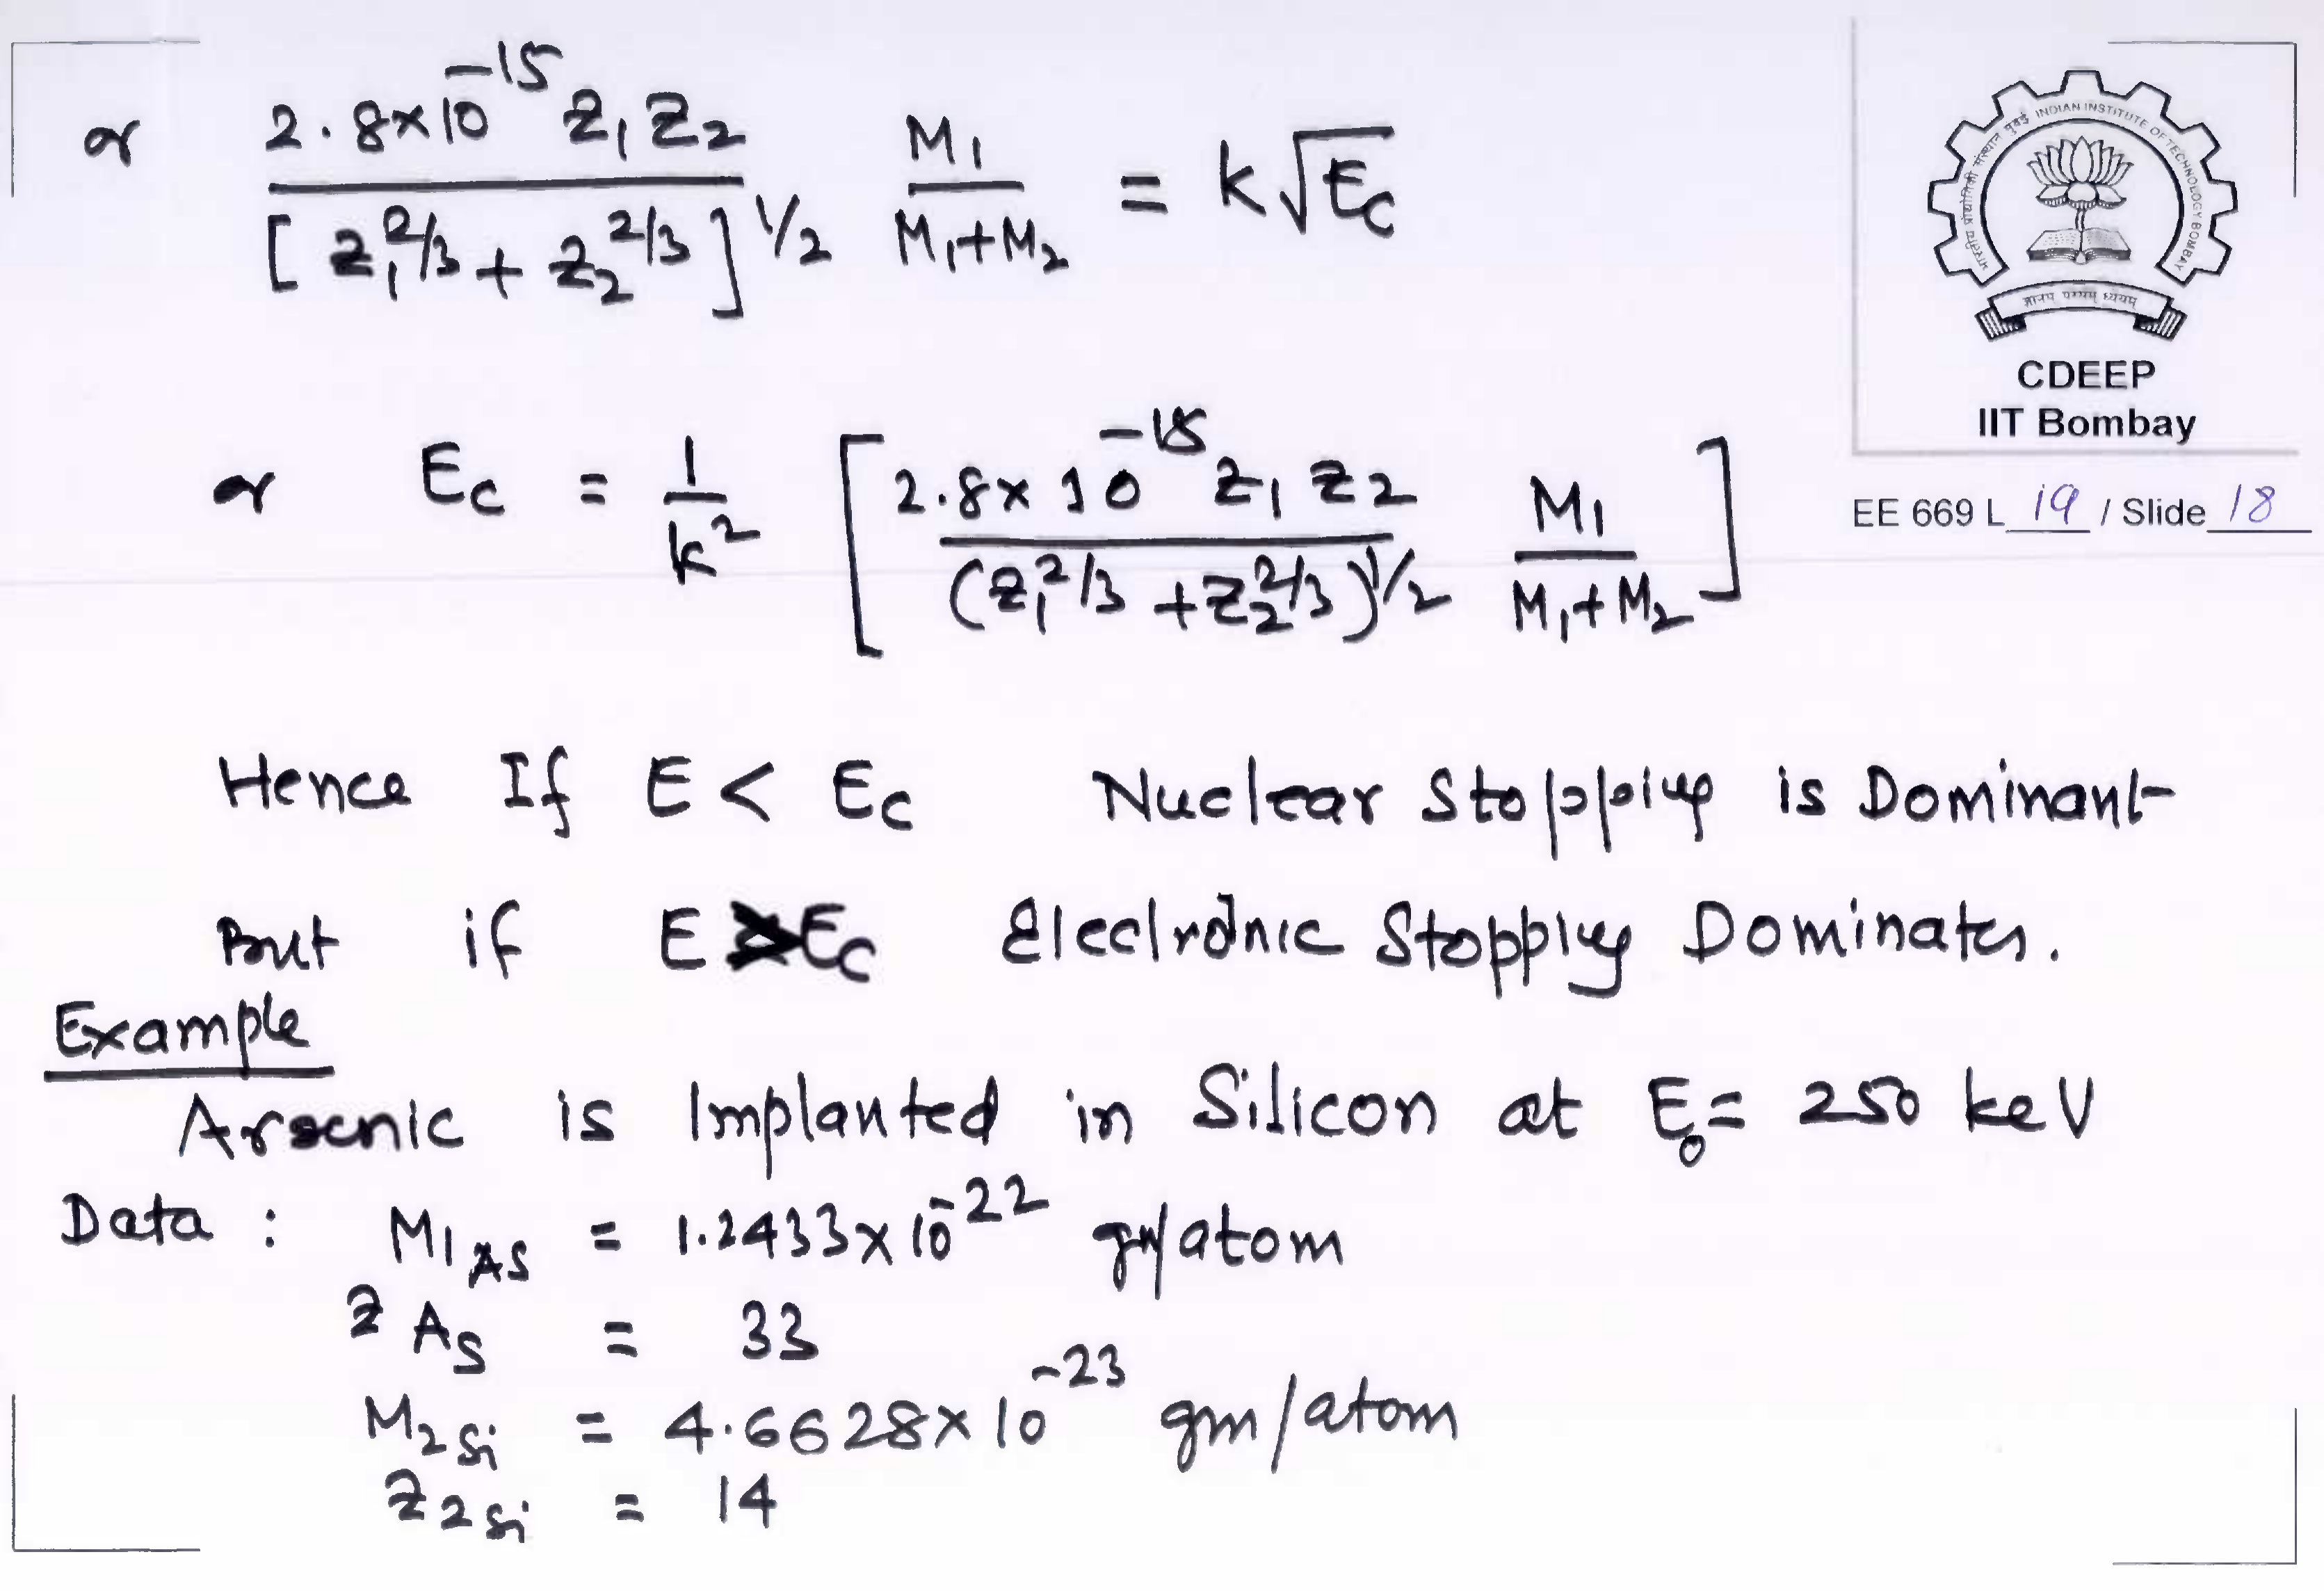 or 2.8×10^-15 Z1 Z2 / [Z1^2/3 + Z2^2/3]^1/2 M1 / M1+M2 = k√Ec
INDIAN INSTITUTE OF TECHNOLOGY BOMBAY
भारतीय प्रौद्योगिकी संस्थान मुंबई
CDEEP
IIT Bombay
EE 669 L 19 / Slide 18
or Ec = 1/k^2 [ 2.8×10^-15 Z1 Z2 / (Z1^2/3 + Z2^2/3)^1/2 M1 / M1+M2 ]
Hence If E < Ec Nuclear Stopping is Dominant
But if E > Ec Electronic Stopping Dominates.
Example
Arsenic is Implanted in Silicon at E0 = 250 keV
Data : M1As = 1.2433×10^-22 gm/atom
ZAs = 33
M2Si = 4.6628×10^-23 gm/atom
Z2Si = 14